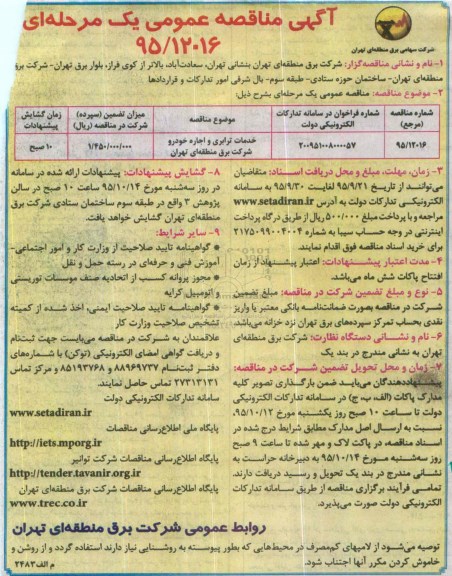 آگهی مناقصه عمومی یک مرحله‌ای
۹۵/۱۲۰۱۶
شرکت سهامی برق منطقه‌ای تهران
۱- نام و نشانی مناقصه‌گزار: شرکت برق منطقه‌ای تهران بنشانی تهران، سعادت‌آباد، بالاتر از کوی فراز، بلوار برق تهران- شرکت برق
منطقه‌ای تهران- ساختمان حوزه ستادی- طبقه سوم- بال شرقی امور تدارکات و قراردادها
۲- موضوع مناقصه: مناقصه عمومی یک مرحله‌ای بشرح ذیل:
شماره مناقصه (مرجع) شماره فراخوان در سامانه تدارکات الکترونیکی دولت موضوع مناقصه میزان تضمین (سپرده) شرکت در مناقصه (ریال) زمان گشایش پیشنهادات
۹۵/۱۲۰۱۶ ۲۰۰۹۵۱۰۰۸۰۰۰۰۵۷ خدمات ترابری و اجاره خودرو شرکت برق منطقه‌ای تهران ۱/۴۵۰/۰۰۰/۰۰۰ ۱۰ صبح
۳- زمان، مهلت، مبلغ و محل دریافت اسناد: متقاضیان
می‌توانند از تاریخ ۹۵/۹/۲۱ لغایت ۹۵/۹/۳۰ به سامانه
الکترونیکی تدارکات دولت به آدرس www.setadiran.ir
مراجعه و با پرداخت مبلغ ۵۰۰/۰۰۰ ریال از طریق درگاه پرداخت
اینترنتی در وجه حساب سیبا به شماره ۲۱۷۵۰۹۹۰۰۴۰۰۴
برای خرید اسناد مناقصه فوق اقدام نمایند.
۴- مدت اعتبار پیشنهادات: اعتبار پیشنهاد از زمان
افتتاح پاکات شش ماه می‌باشد.
۵- نوع و مبلغ تضمین شرکت در مناقصه: مبلغ تضمین
شرکت در مناقصه بصورت ضمانت‌نامه بانکی معتبر یا واریز
نقدی بحساب تمرکز سپرده‌های برق تهران نزد خزانه می‌باشد.
۶- نام و نشانی دستگاه نظارت: شرکت برق منطقه‌ای
تهران به نشانی مندرج در بند یک
۷- زمان و محل تحویل تضمین شرکت در مناقصه:
پیشنهاددهندگان می‌باید ضمن بارگذاری تصویر کلیه
مدارک پاکات (الف، ب، ج) در سامانه تدارکات الکترونیکی
دولت تا ساعت ۱۰ صبح روز یکشنبه مورخ ۹۵/۱۰/۱۲،
نسبت به ارسال اصل مدارک مطابق شرایط درج شده در
اسناد مناقصه، در پاکت لاک و مهر شده تا ساعت ۹ صبح
روز سه‌شنبه مورخ ۹۵/۱۰/۱۴ به دبیرخانه حراست به
نشانی مندرج در بند یک تحویل و رسید دریافت دارند.
تمامی فرآیند برگزاری مناقصه از طریق سامانه تدارکات
الکترونیکی دولت صورت می‌پذیرد.
۸- گشایش پیشنهادات: پیشنهادات ارائه شده در سامانه
در روز سه‌شنبه مورخ ۹۵/۱۰/۱۴ ساعت ۱۰ صبح در سالن
پژوهش ۳ واقع در طبقه سوم ساختمان ستادی شرکت برق
منطقه‌ای تهران گشایش خواهد یافت.
۹- سایر شرایط:
* گواهینامه تایید صلاحیت از وزارت کار و امور اجتماعی-
آموزش فنی و حرفه‌ای در رسته حمل و نقل
* مجوز پروانه کسب از اتحادیه صنف موسسات توریستی
و اتومبیل کرایه
* گواهینامه تایید صلاحیت ایمنی، اخذ شده از کمیته
تشخیص صلاحیت وزارت کار
علاقمندان به شرکت در مناقصه می‌بایست جهت ثبت‌نام
و دریافت گواهی امضای الکترونیکی (توکن) با شماره‌های
دفتر ثبت‌نام ۸۸۹۶۹۷۳۷ و ۸۵۱۹۳۷۶۸ و مرکز تماس
۲۷۳۱۳۱۳۱ تماس حاصل نمایند.
سامانه تدارکات الکترونیکی دولت
www.setadiran.ir
پایگاه ملی اطلاع‌رسانی مناقصات
http://iets.mporg.ir
پایگاه اطلاع‌رسانی مناقصات شرکت توانیر
http://tender.tavanir.org.ir
پایگاه اطلاع‌رسانی مناقصات شرکت برق منطقه‌ای تهران
www.trec.co.ir
روابط عمومی شرکت برق منطقه‌ای تهران
توصیه می‌شود از لامپهای کم‌مصرف در محیط‌هایی که بطور پیوسته به روشنایی نیاز دارند استفاده گردد و از روشن و
خاموش کردن مکرر آنها اجتناب شود.
م الف ۲۴۸۳